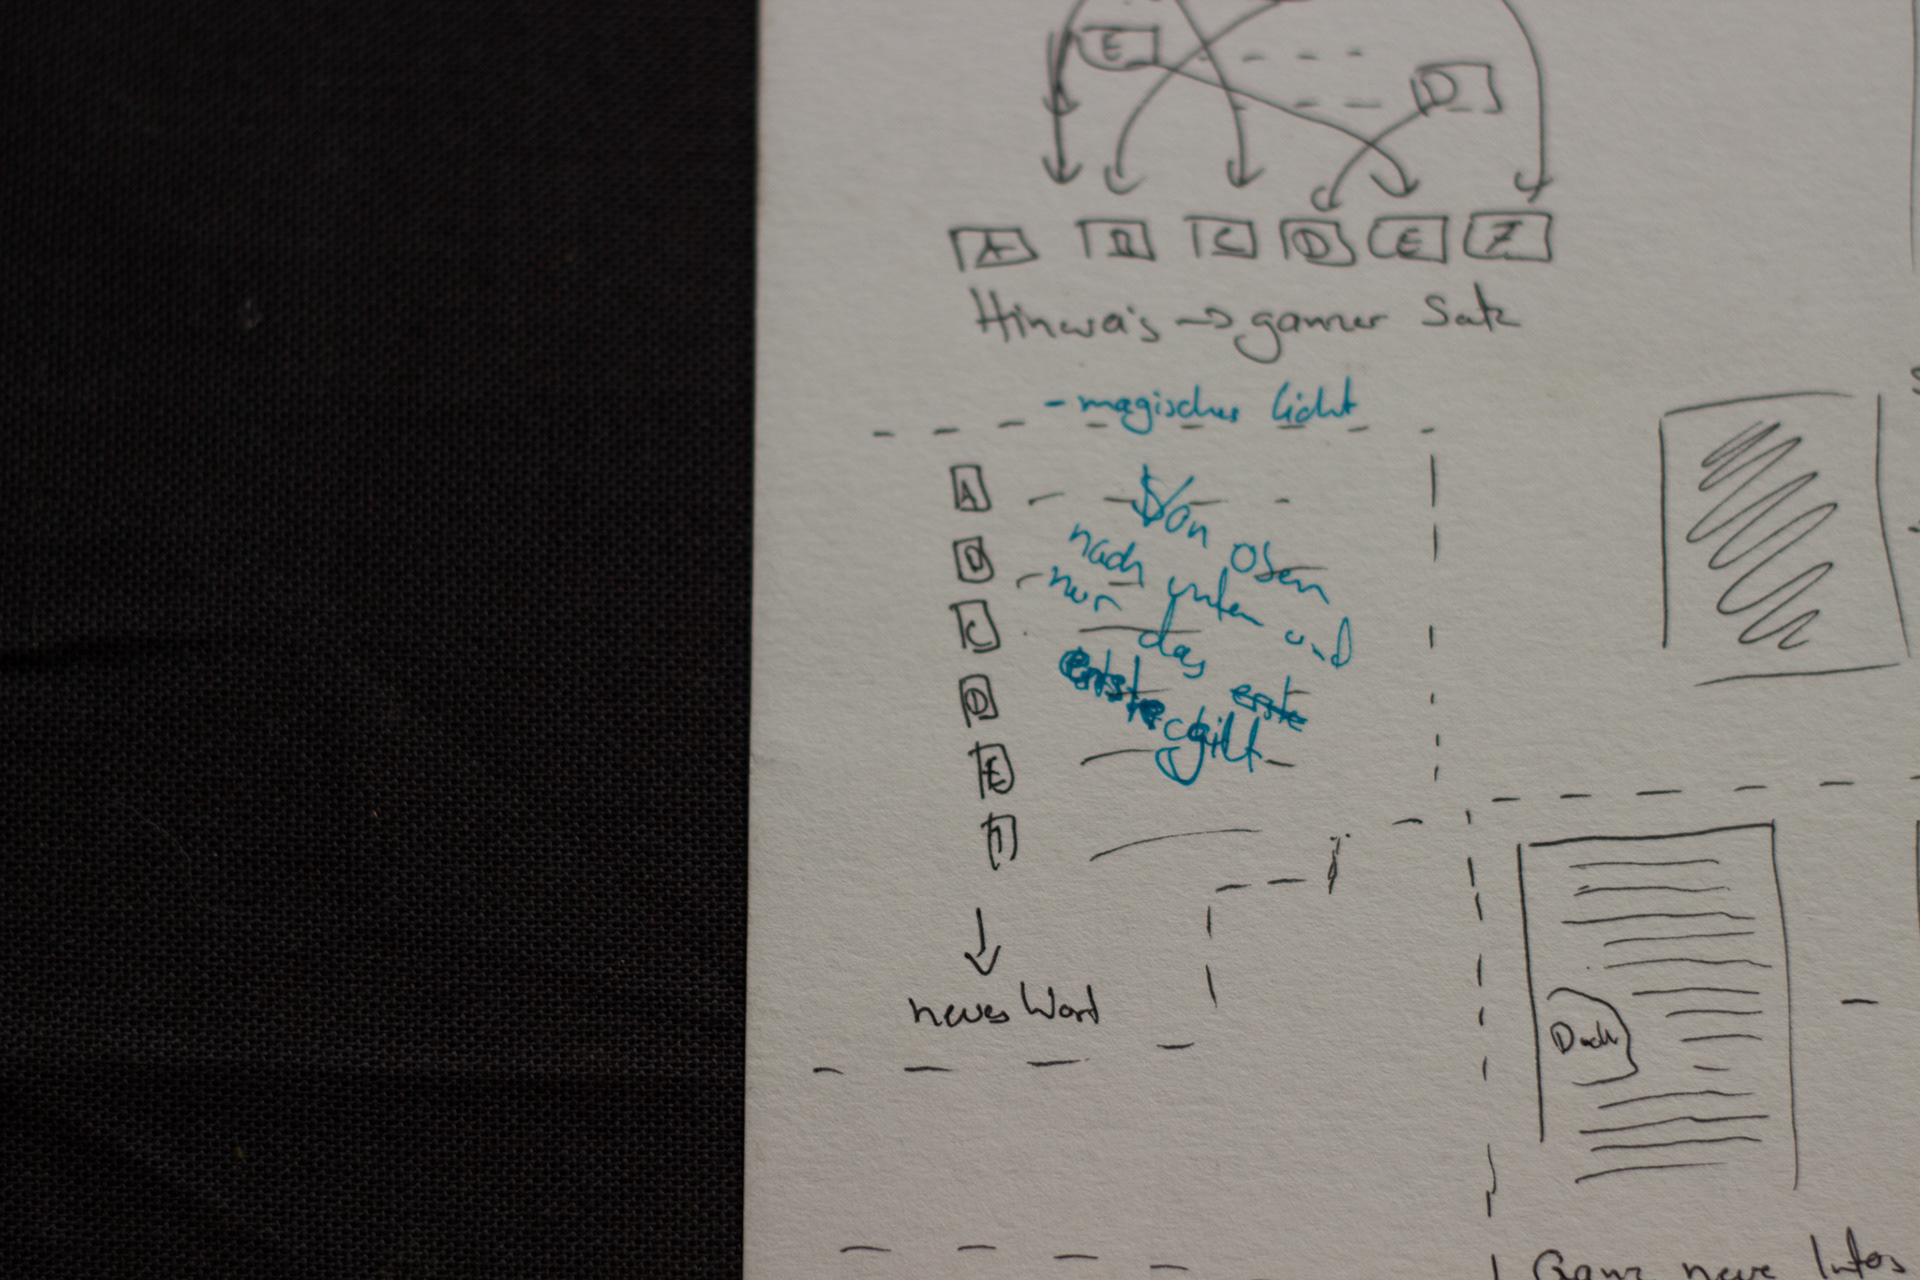 E
D
A B C D E Z
Hinweis → ganzer Satz
- magisches Licht
A
D
C
D
E
Von oben
nach unten und
nur das erste
gilt
↓
neues Word
Dach
Ganz neue Infos